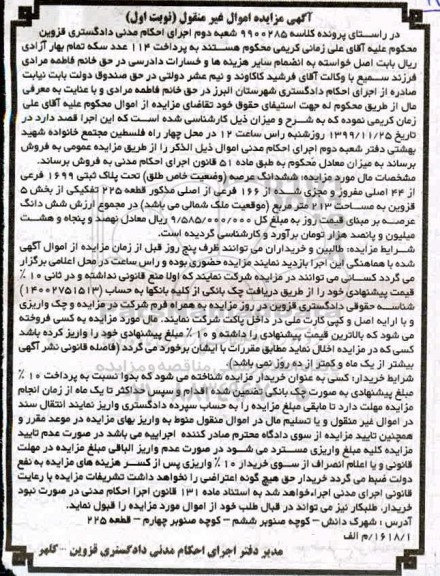 آگهی مزایده اموال غیر منقول (نوبت اول)
در راستای پرونده کلاسه ۹۹۰۰۲۸۵ شعبه دوم اجرای احکام مدنی دادگستری قزوین
محکوم علیه آقای علی زمانی کریمی محکوم هستند به پرداخت ۱۱۴ عدد سکه تمام بهار آزادی
ریال بابت اصل خواسته به انضمام سایر هزینه ها و خسارات دادرسی در حق خانم فاطمه مرادی
فرزند سمیع با وکالت آقای فرشید کاکاوند و نیم عشر دولتی در حق صندوق دولت بابت نیابت
صادره از اجرای احکام دادگستری شهرستان البرز در حق خانم فاطمه مرادی و با عنایت به معرفی
مال از طریق محکوم له جهت استیفای حقوق خود تقاضای مزایده از اموال محکوم علیه آقای علی
زمان کریمی نموده که به شرح و میزان ذیل کارشناسی شده است که این اجرا قصد دارد در
تاریخ ۱۳۹۹/۱۱/۲۵ روزشنبه راس ساعت ۱۲ در محل چهار راه فلسطین مجتمع خانواده شهید
بهشتی دفتر شعبه دوم اجرای احکام مدنی اموال ذیل الذکر را از طریق مزایده عمومی به فروش
برساند به میزان معادل محکوم به طبق ماده ۵۱ قانون اجرای احکام مدنی به فروش برساند.
مشخصات مال مورد مزایده: ششدانگ عرصه (وضعیت خاص طلق) تحت پلاک ثبتی ۱۶۹۹ فرعی
از ۴۴ اصلی مفروز و مجزی شده از ۱۶۶ فرعی از اصلی مذکور قطعه ۲۲۵ تفکیکی از بخش ۵
قزوین به مساحت ۲۱۳ متر مربع (موقعیت ملک شمالی می باشد) در مجموع ارزش شش دانگ
عرصه بر مبنای قیمت روز به مبلغ کل ۹/۵۸۵/۰۰۰/۰۰۰ ریال معادل نهصد و پنجاه و هشت
میلیون و پانصد هزار تومان برآورد و کارشناسی گردیده است.
شرایط مزایده: طالبین و خریداران می توانند ظرف پنج روز قبل از زمان مزایده از اموال آگهی
شده با هماهنگی این اجرا بازدید نمایند مزایده حضوری بوده و راس ساعت در محل اعلامی برگزار
می گردد کسانی می توانند در مزایده شرکت نمایند که اولا منع قانونی نداشته و در ثانی ۱۰ ٪
قیمت پیشنهادی خود را از طریق دریافت چک بانکی از کلیه بانکها به حساب (۱۴۰۰۲۷۵۱۵۱۳)
شناسه حقوقی دادگستری قزوین در روز مزایده به همراه فرم شرکت در مزایده و چک واریزی
و با ارایه اصل و کپی کارت ملی در داخل پاکت شرکت نمایند. مال مورد مزایده به کسی فروخته
می شود که بالاترین قیمت پیشنهادی را داشته و ۱۰ ٪ مبلغ پیشنهادی خود را واریز کرده باشد
کسی که در مزایده اخلال نماید مطابق مقررات با ایشان برخورد می گردد (فاصله قانونی نشر آگهی
بیشتر از یک ماه و کمتر از ده روز نمی باشد).
شرایط خریدار: کسی به عنوان خریدار مزایده شناخته می شود که بدوا نسبت به پرداخت ۱۰ ٪
مبلغ پیشنهادی به صورت چک بانکی تضمین شده اقدام و سپس حداکثر تا یک ماه از زمان انجام
مزایده مهلت دارد تا مابقی مبلغ مزایده را به حساب سپرده دادگستری واریز نمایند انتقال سند
در اموال غیر منقول و یا تسلیم مال در اموال منقول منوط به واریز بهای مزایده در موعد مقرر و
همچنین تایید مزایده از سوی دادگاه محترم صادر کننده اجراییه می باشد در صورت عدم تایید
مزایده کلیه مبلغ واریزی مسترد می شود در صورت عدم واریز الباقی مبلغ مزایده در مهلت
قانونی و یا اعلام انصراف از سوی خریدار ۱۰ ٪ واریزی پس از کسر هزینه های مزایده به نفع
دولت ضبط می گردد خریدار حق هیچ گونه اعتراضی را نخواهد داشت تشریفات مزایده با رعایت
قانونی اجرای مدنی اجراخواهد شد به استناد ماده ۱۳۱ قانون اجرا احکام مدنی در صورت نبود
خریدار، طلبکار نیز می تواند در قبال طلب خود از اموال مورد مزایده را قبول نماید.
آدرس : شهرک دانش – کوچه صنوبر ششم – کوچه صنوبر چهارم – قطعه ۲۲۵
۱/۱۶۱۸/م الف
مدیر دفتر اجرای احکام مدنی دادگستری قزوین ... کلهر